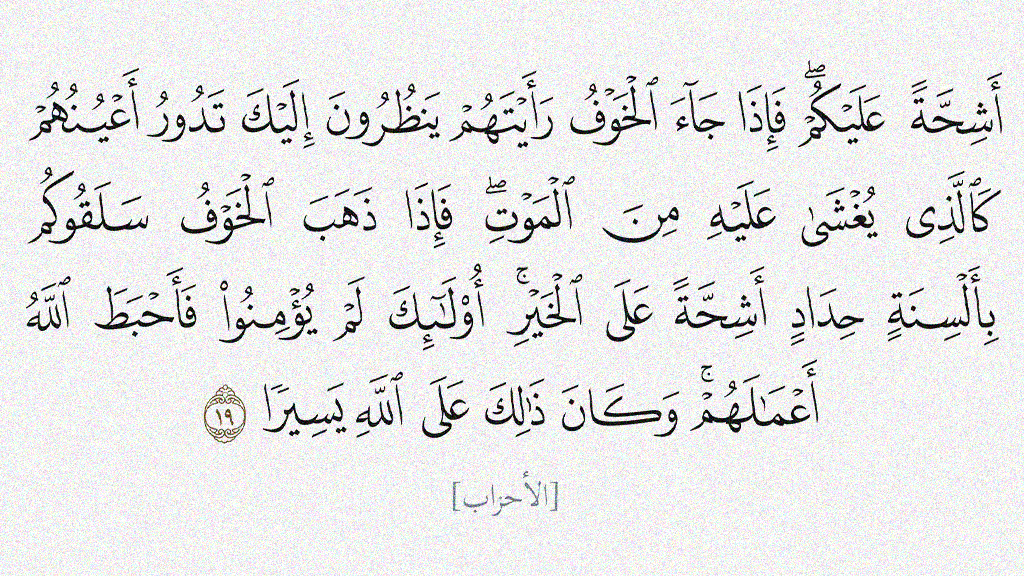 أَشِحَّةً عَلَيْكُمْ ۖ فَإِذَا جَآءَ ٱلْخَوْفُ رَأَيْتَهُمْ يَنظُرُونَ إِلَيْكَ تَدُورُ أَعْيُنُهُمْ
كَٱلَّذِى يُغْشَىٰ عَلَيْهِ مِنَ ٱلْمَوْتِ ۖ فَإِذَا ذَهَبَ ٱلْخَوْفُ سَلَقُوكُم
بِأَلْسِنَةٍ حِدَادٍ أَشِحَّةً عَلَى ٱلْخَيْرِ ۚ أُو۟لَـٰٓئِكَ لَمْ يُؤْمِنُوا۟ فَأَحْبَطَ ٱللَّهُ
أَعْمَـٰلَهُمْ ۚ وَكَانَ ذَٰلِكَ عَلَى ٱللَّهِ يَسِيرًا ١٩
[الأحزاب]